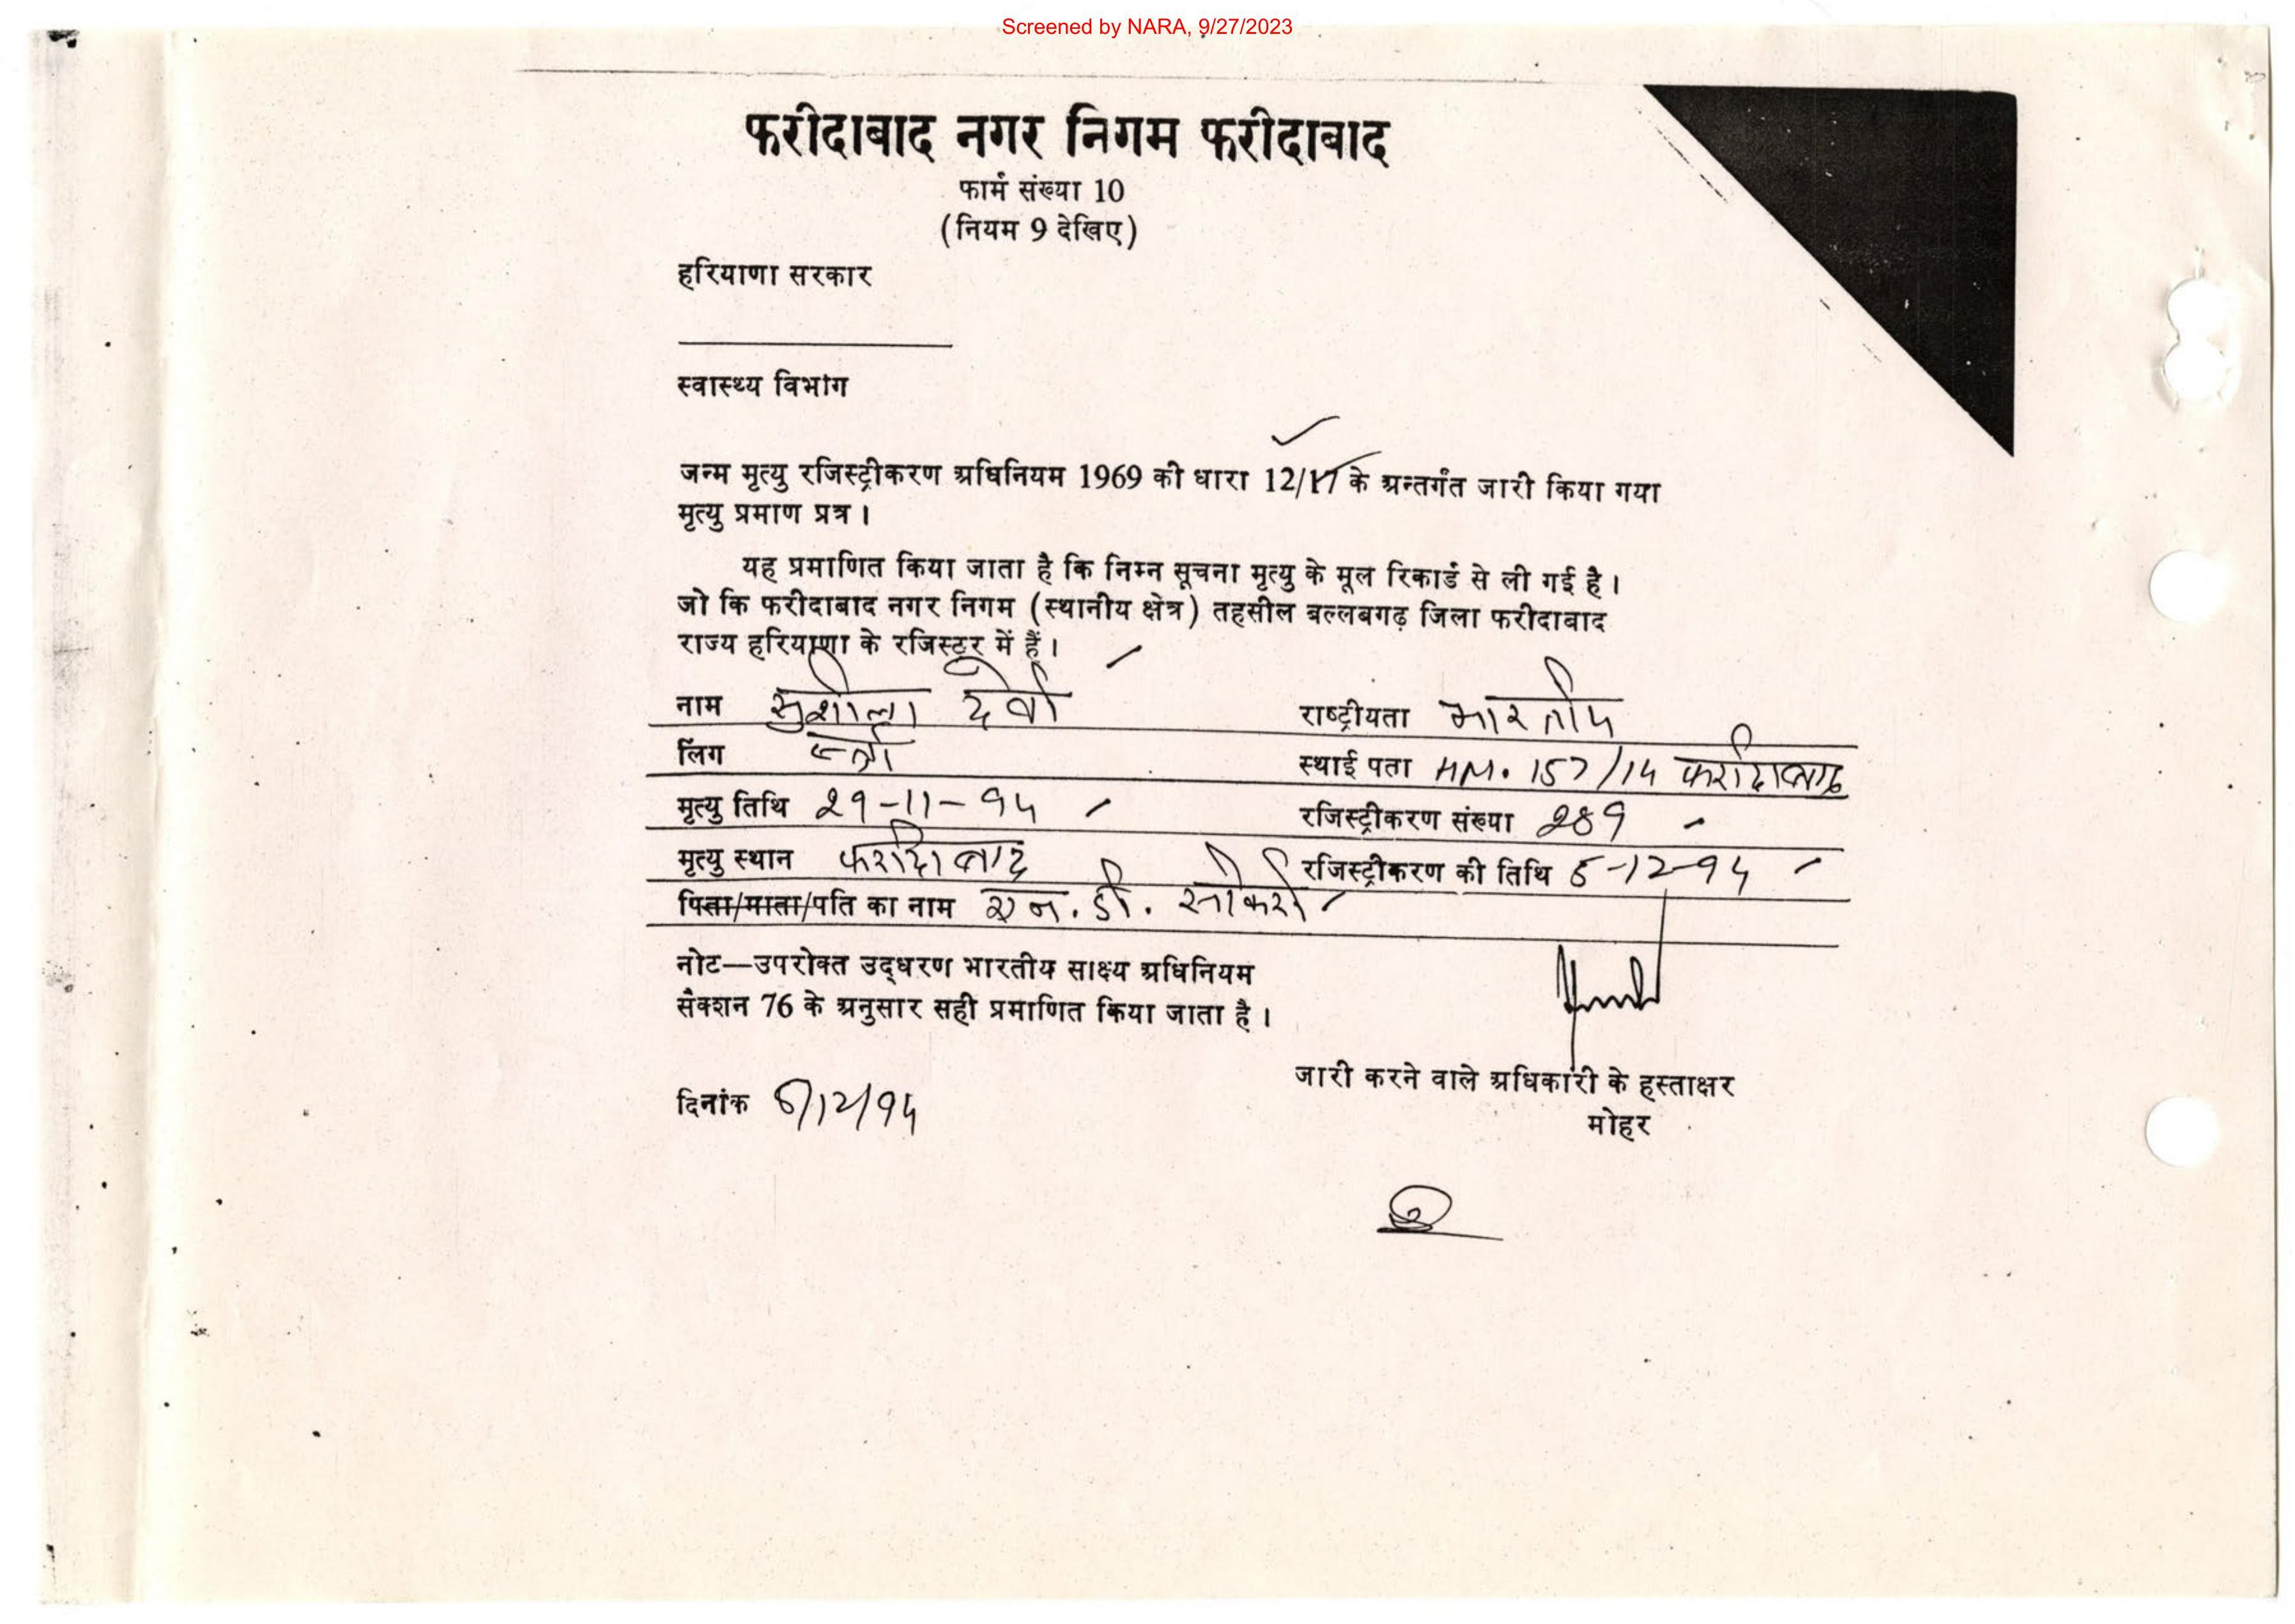 Screened by NARA, 9/27/2023
फरीदाबाद नगर निगम फरीदाबाद
फार्म संख्या 10
(नियम 9 देखिए)
हरियाणा सरकार
स्वास्थ्य विभाग
जन्म मृत्यु रजिस्ट्रीकरण अधिनियम 1969 की धारा 12/17 के अन्तर्गत जारी किया गया
मृत्यु प्रमाण प्रत्र ।
यह प्रमाणित किया जाता है कि निम्न सूचना मृत्यु के मूल रिकार्ड से ली गई है ।
जो कि फरीदाबाद नगर निगम (स्थानीय क्षेत्र) तहसील बल्लबगढ़ जिला फरीदाबाद
राज्य हरियाणा के रजिस्टर में हैं ।
नाम सुशीला देवी राष्ट्रीयता भारतीय
लिंग स्त्री स्थाई पता HM. 157/14 फरीदाबाद
मृत्यु तिथि 29-11-94 रजिस्ट्रीकरण संख्या 289
मृत्यु स्थान फरीदाबाद रजिस्ट्रीकरण की तिथि 5-12-94
पिता/माता/पति का नाम एन. डी.
नोट—उपरोक्त उद्धरण भारतीय साक्ष्य अधिनियम
सैक्शन 76 के अनुसार सही प्रमाणित किया जाता है ।
जारी करने वाले अधिकारी के हस्ताक्षर
दिनांक 6/12/94
मोहर